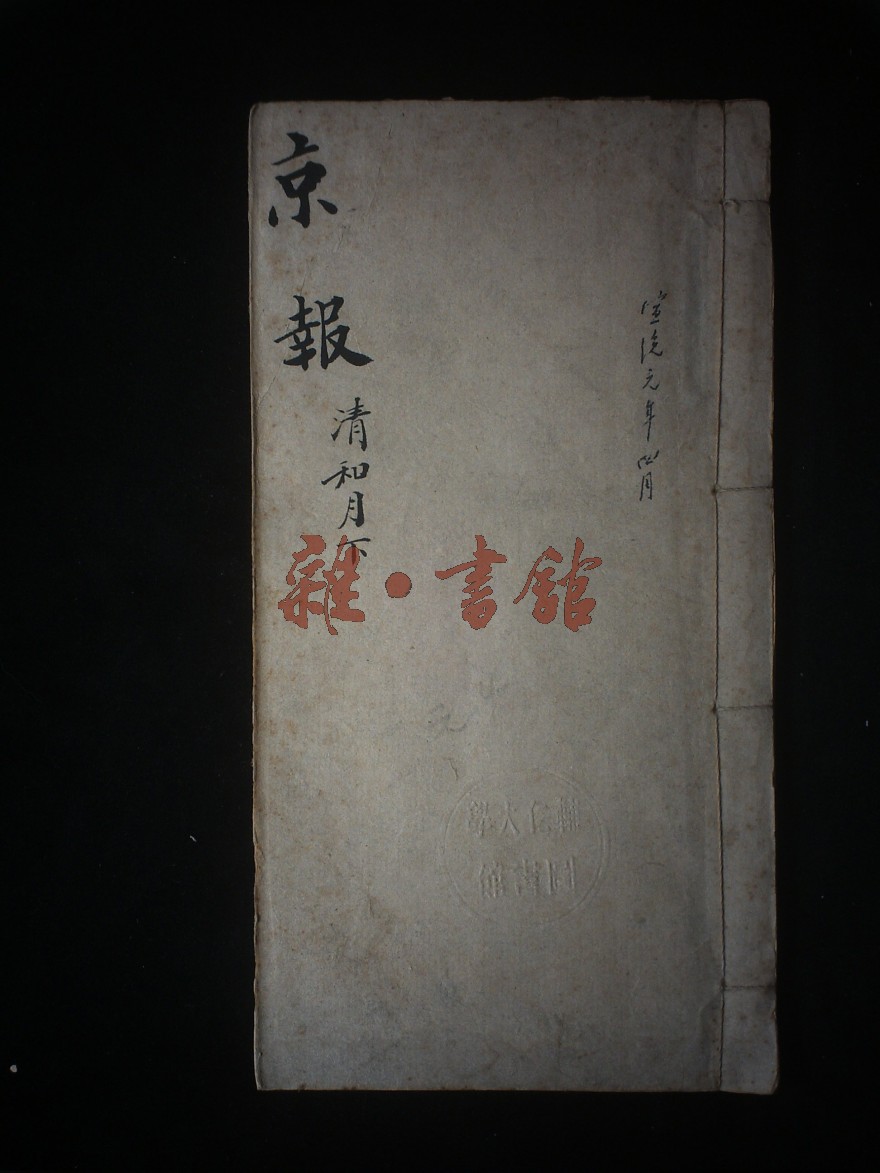 宣統元年四月
京報
清和月下
雜·書館
輔仁大學
圖書館